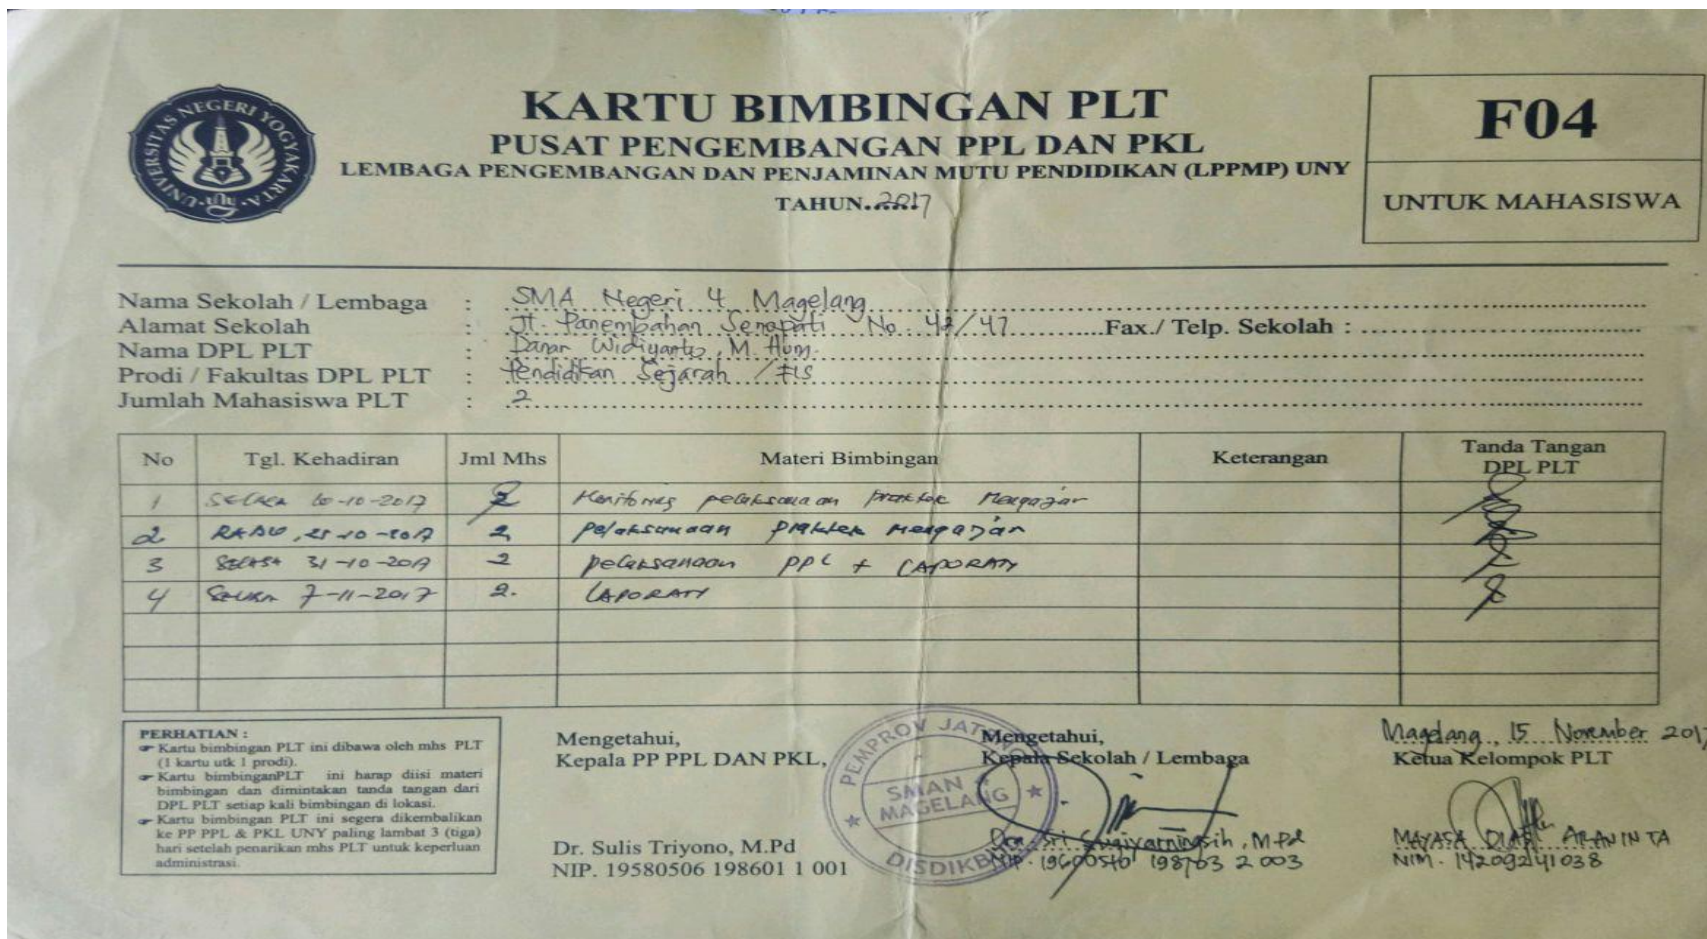 UNIVERSITAS NEGERI YOGYAKARTA
UNY
KARTU BIMBINGAN PLT
PUSAT PENGEMBANGAN PPL DAN PKL
LEMBAGA PENGEMBANGAN DAN PENJAMINAN MUTU PENDIDIKAN (LPPMP) UNY
TAHUN.2017
F04
UNTUK MAHASISWA
Nama Sekolah / Lembaga : SMA Negeri 4 Magelang
Alamat Sekolah : Jl. Panembahan Senopati No. 42/47 Fax./ Telp. Sekolah :
Nama DPL PLT : Danar Widiyanto, M. Hum.
Prodi / Fakultas DPL PLT : Pendidikan Sejarah / FIS
Jumlah Mahasiswa PLT : 2
No Tgl. Kehadiran Jml Mhs Materi Bimbingan Keterangan Tanda Tangan DPL PLT
1 Selasa 10-10-2017 2 Monitoring pelaksanaan praktek Mengajar
2 RABU, 25-10-2017 2 pelaksanaan praktek Mengajar
3 SELASA 31-10-2017 2 pelaksanaan PPL + LAPORAN
4 Selasa 7-11-2017 2. LAPORAN
PERHATIAN :
☞ Kartu bimbingan PLT ini dibawa oleh mhs PLT
(1 kartu utk 1 prodi).
☞ Kartu bimbinganPLT ini harap diisi materi
bimbingan dan dimintakan tanda tangan dari
DPL PLT setiap kali bimbingan di lokasi.
☞ Kartu bimbingan PLT ini segera dikembalikan
ke PP PPL & PKL UNY paling lambat 3 (tiga)
hari setelah penarikan mhs PLT untuk keperluan
administrasi.
Mengetahui,
Kepala PP PPL DAN PKL,
Dr. Sulis Triyono, M.Pd
NIP. 19580506 198601 1 001
PEMPROV JATENG
SMAN 4
MAGELANG
DISDIKBUD
Mengetahui,
Kepala Sekolah / Lembaga
Dra. Sri Sugiyarningsih, M.Pd
NIP. 19600510 198703 2 003
Magelang, 15 November 2017
Ketua Kelompok PLT
MAYASA DIAH
NIM. 14209241038